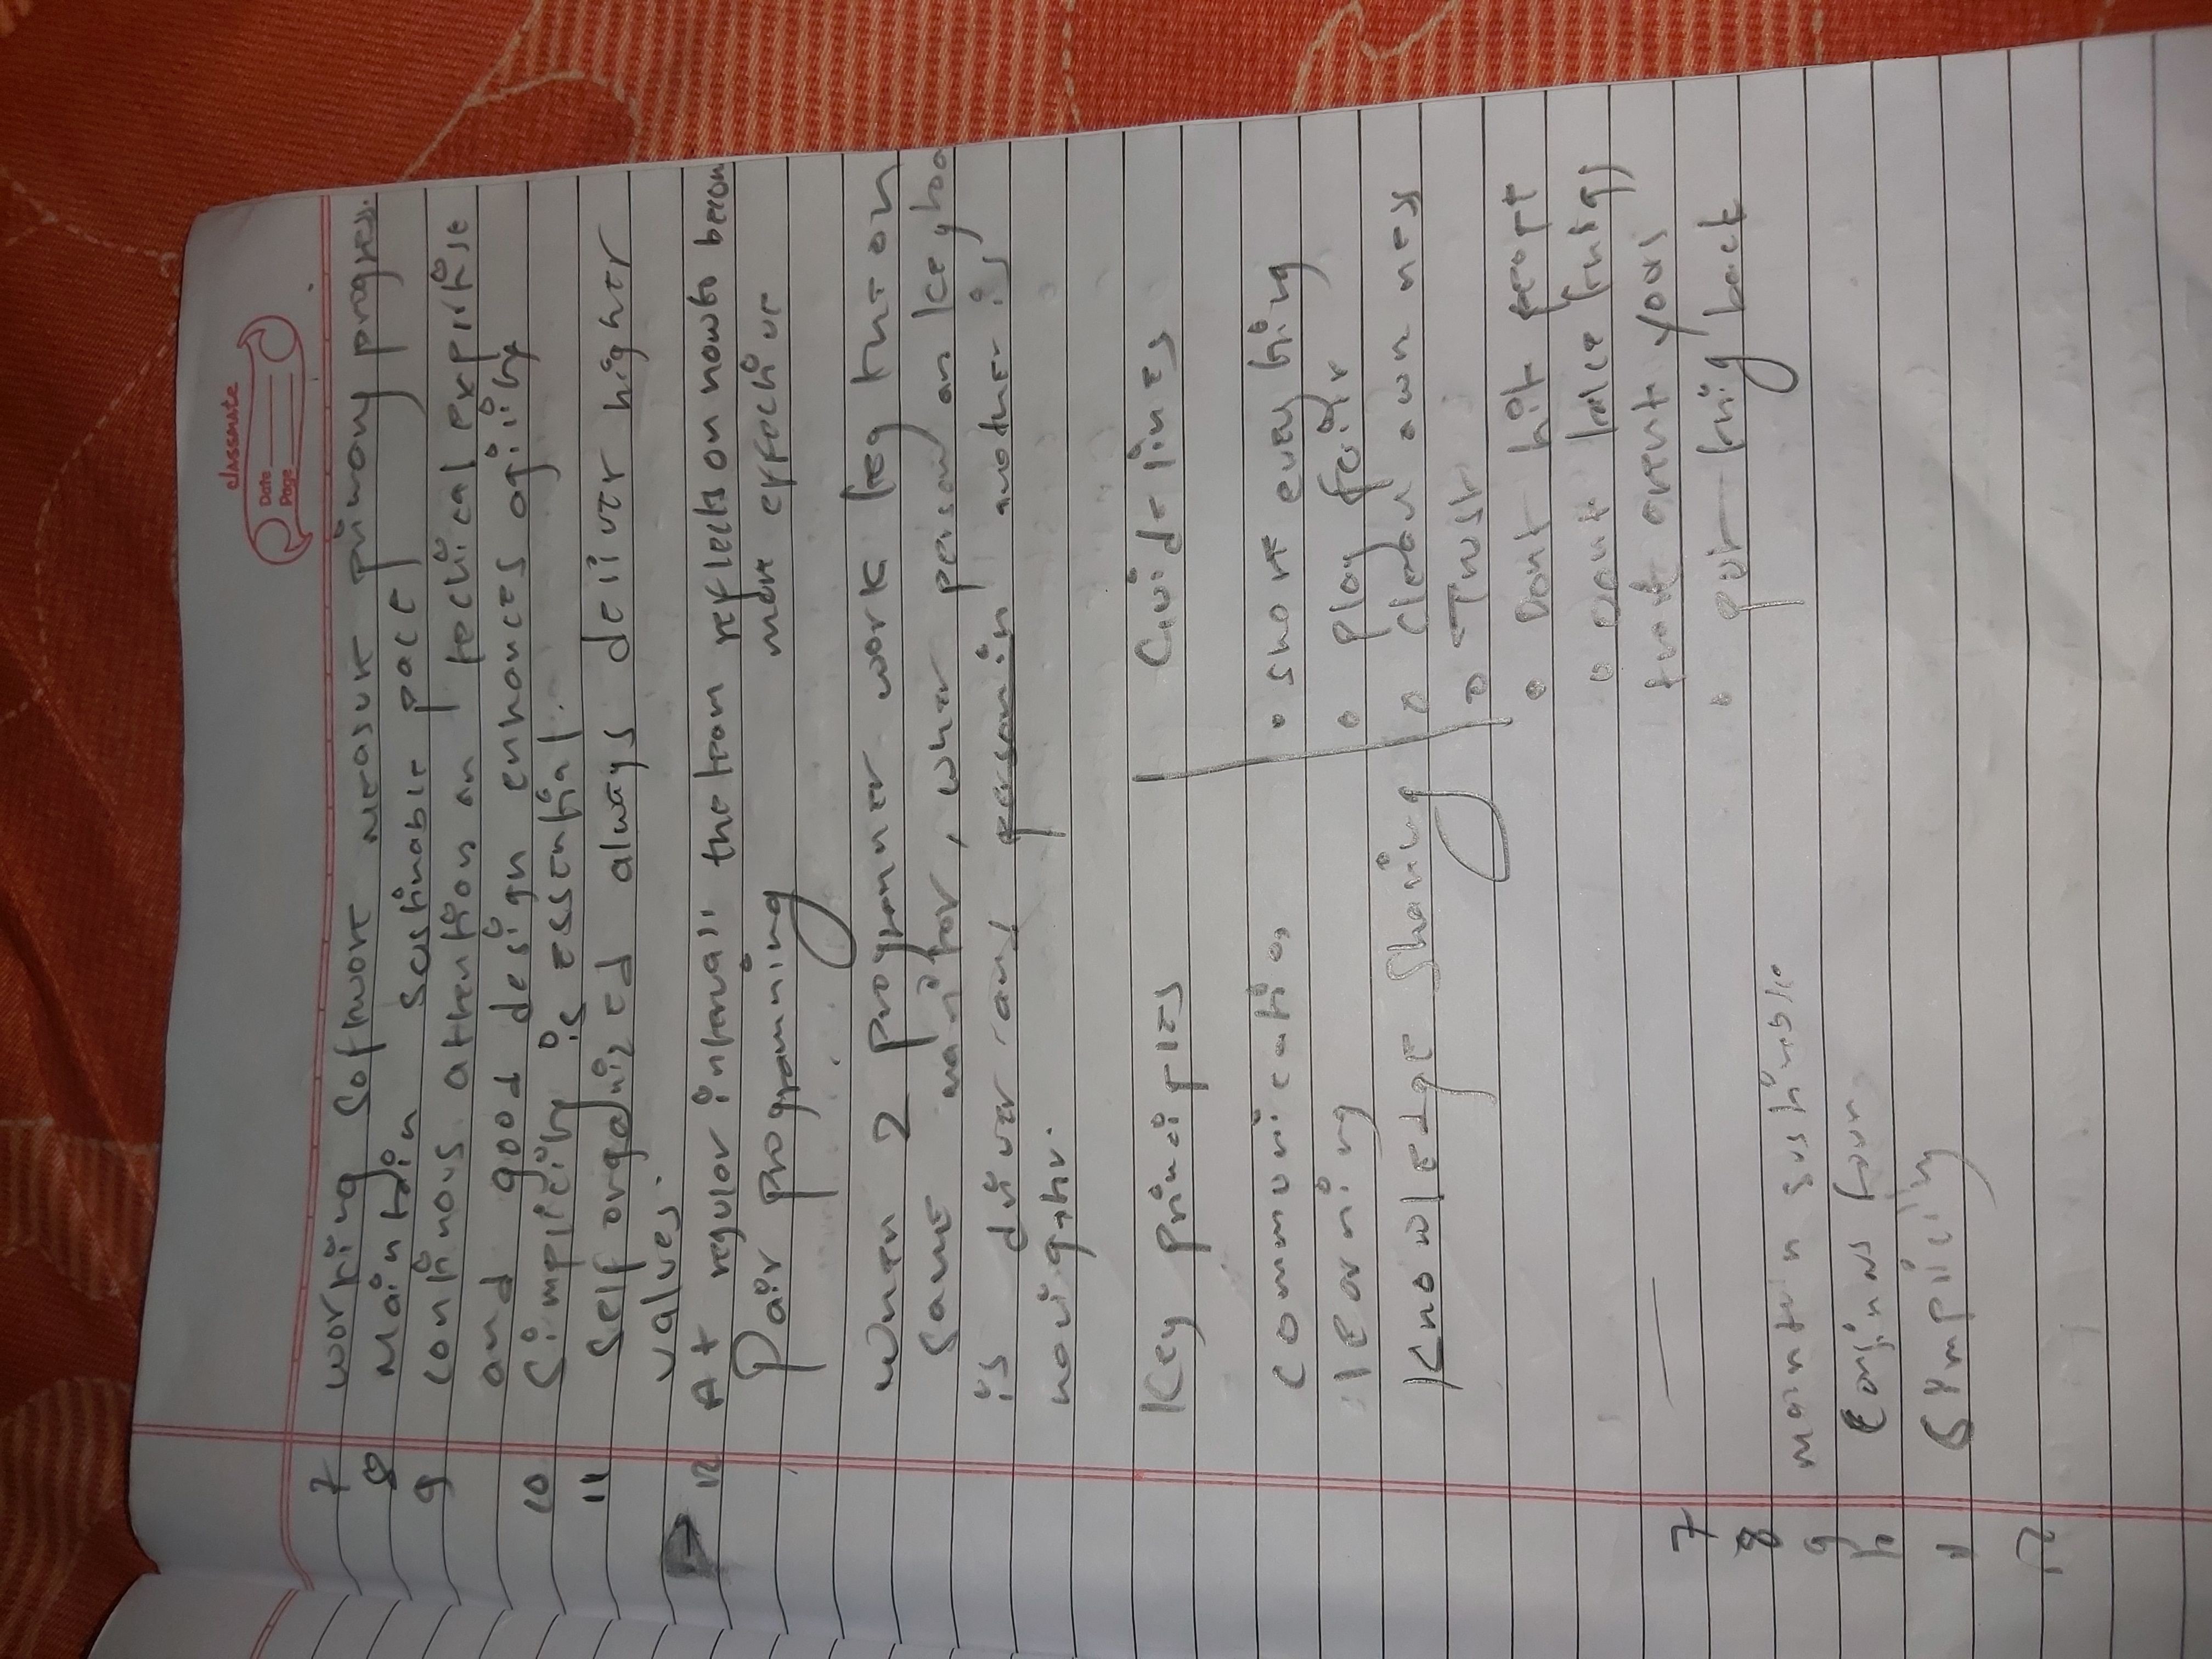 classmate
Date
Page
7 working software measure primary progress.
8 Maintain sustinable pace
9 continous attention on techical expertise
and good design enhances agility
10 Simplicity is essential.
11 Self organized always deliver higher
values.
12 At regular intervals the team reflects on how to becom
more effective
Pair programming
when 2 programmer work tog the on
same monitor, wher person on keyboa
is driver and person in another is
navigator.
Key principles
Guidelines
communication
learning
Knowledge Sharing
• share every thing
• play fair
• clean own mess
• Trust
• Dont hit people
• Dont take things
that arent yours
• put thig back
7
8
9 maintain sustinable
10
11 Simplicity
12